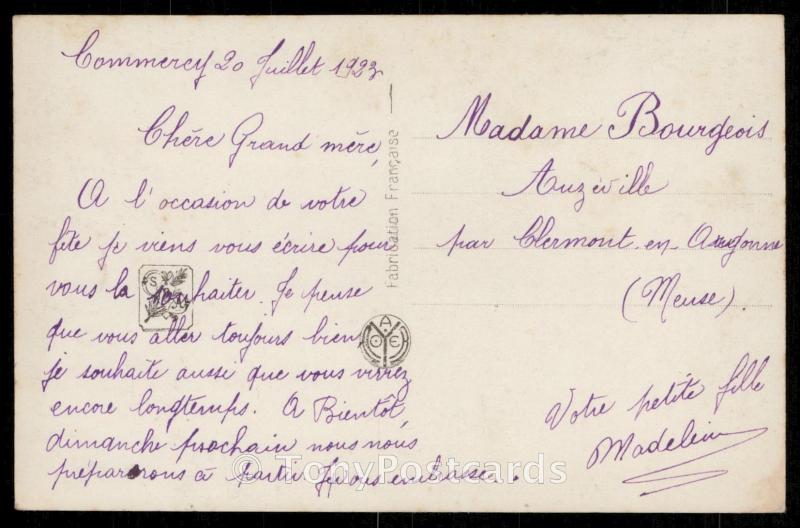 Commercy 20 Juillet 1923
Chère Grand mère,
A l'occasion de votre
fête je viens vous écrire pour
vous la souhaiter. Je pense
que vous aller toujours bien
je souhaite aussi que vous vivrez
encore longtemps. A Bientôt,
dimanche prochain nous nous
préparerons à partir Je vous embrasse.
Fabrication Française
S
A
O E
Madame Bourgeois
Auzéville
par Clermont-en-Argonne
(Meuse)
Votre petite fille
Madeleine
© TonyPostcards